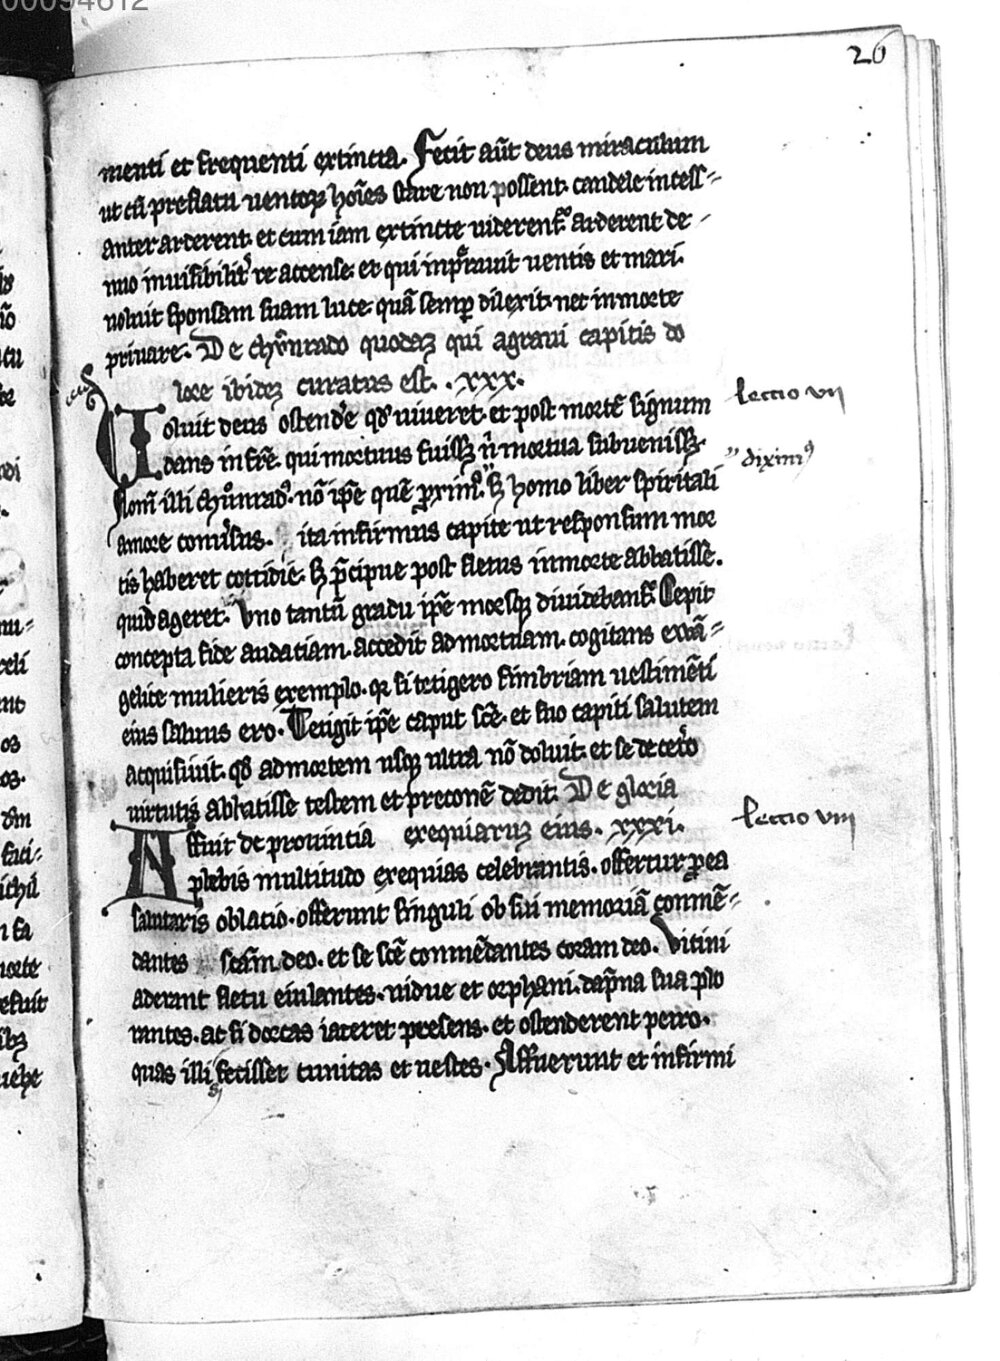 00094612
26
menti et frequenti extincta. Fecit aūt deus miraculum
ut cū preflatu uentoꝝ hoīes stare non possent. candele incess-
anter arderent. et cum iam extincte uiderent᷑ arderent de-
nuo inuisibilit̾ re accense. et qui inp̄auit uentis et mari.
noluit sponsam suam luce quā semꝑ dilexit. nec in morte
priuare. De chūnrado quodaꝫ qui agraui capitis do
lore ibideꝫ curatus est. .xxx.
Uoluit deus ostendʼe qđ uiueret. et post mortē signum
lectio vii
dans in frē. qui mortuus fuissꝫ nͥ mortua subuenissꝫ.
diximꝰ
Nom̄ illi chůnradꝰ. nō ip̄e quē p̱rimꝰ. sꝫ homo liber spiritali
amore conuʼsus. ita infirmus capite ut responsum mor
tis haberet cottidie. sꝫ p̄cipue post fletus in morte abbatisse.
quid ageret. Vno tantū gradu ip̄e morsqꝫ diuidebant᷑. Cepit
concepta fide audatiam. accedit ad mortuam. cogitans euuā-
gelice mulieris exemplo. qꝛ si tetigero fimbriam uestimēti
eius saluus ero. Tetigit ip̄e caput scē. et suo capiti salutem
acquisiuit. qđ ad mortem usqꝫ ultra nō doluit. et se de cetʼo
uirtutis abbatisse testem et preconē dedit. De gloria
Affuit de prouintia exequiaruꝫ eius. .xxxi.
lectio viii
plebis multitudo exequias celebrantis. offertur ꝑ ea
salutaris oblatio. offerunt singuli ob sui memoriā conmē-
dantes scām deo. et se scē conmēdantes coram deo. Vicini
aderant fletu eiulantes. uidue et orphani. dāpna sua plo
rantes. ac si dorcas iaceret presens. et ostenderent petro.
quas illi fecisset tunicas et uestes. Affuerunt et infirmi